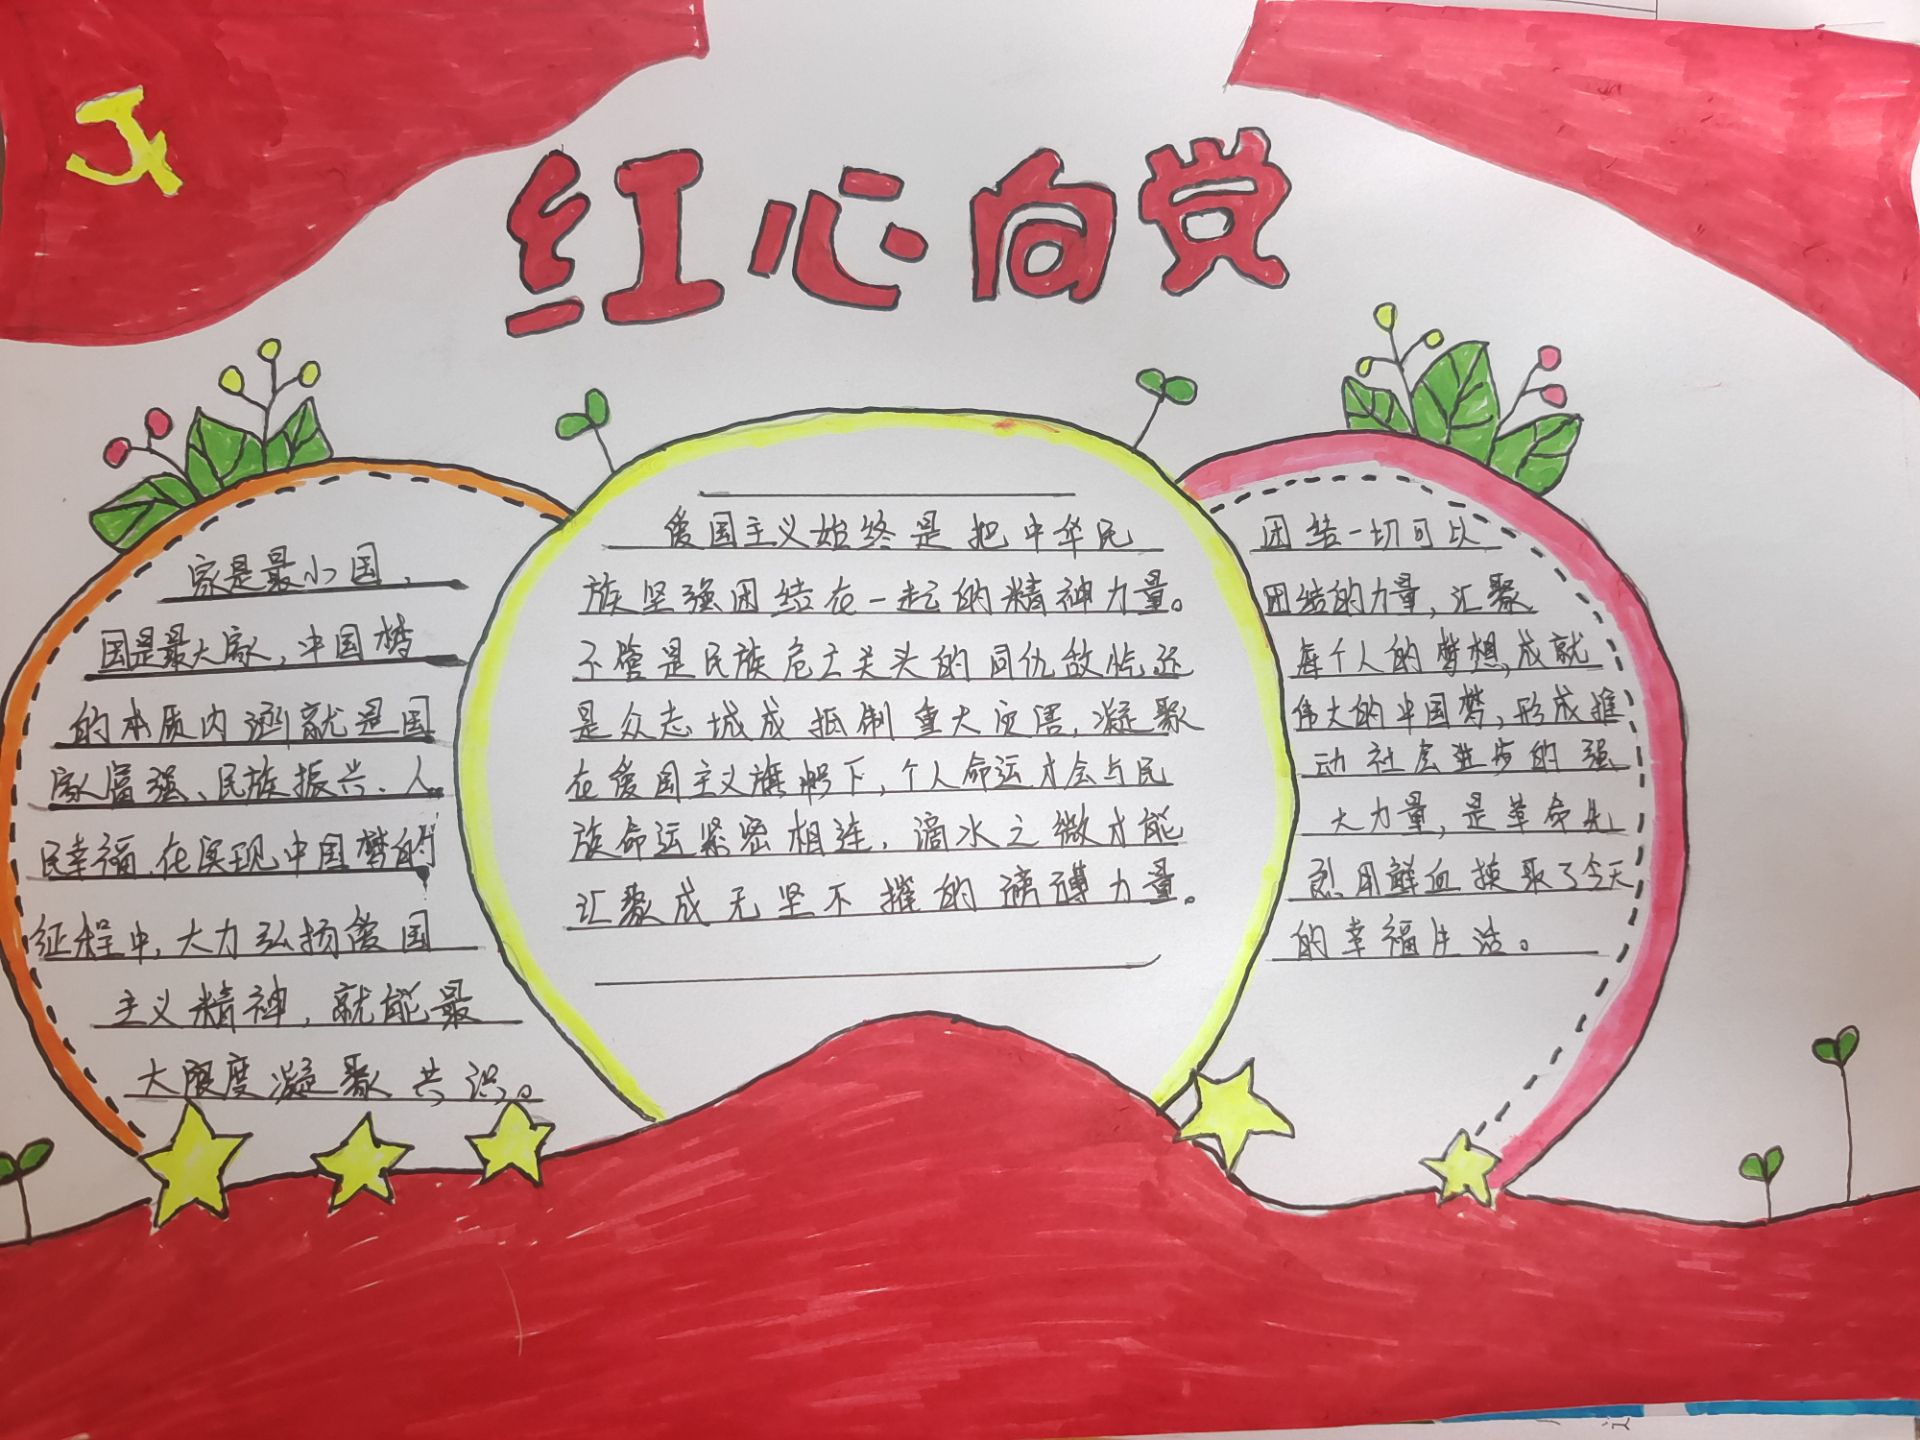 红心向党
家是最小国，
国是最大家，中国梦
的本质内涵就是国
家富强、民族振兴、人
民幸福，在实现中国梦的
征程中，大力弘扬爱国
主义精神，就能最
大限度凝聚共识。
爱国主义始终是把中华民
族坚强团结在一起的精神力量。
不管是民族危亡关头的同仇敌忾还
是众志城成抵制重大灾害，凝聚
在爱国主义旗帜下，个人命运才会与民
族命运紧密相连，滴水之微才能
汇聚成无坚不摧的磅礴力量。
团结一切可以
团结的力量，汇聚
每个人的梦想，成就
伟大的中国梦，形成推
动社会进步的强
大力量，是革命先
烈用鲜血换取了今天
的幸福生活。